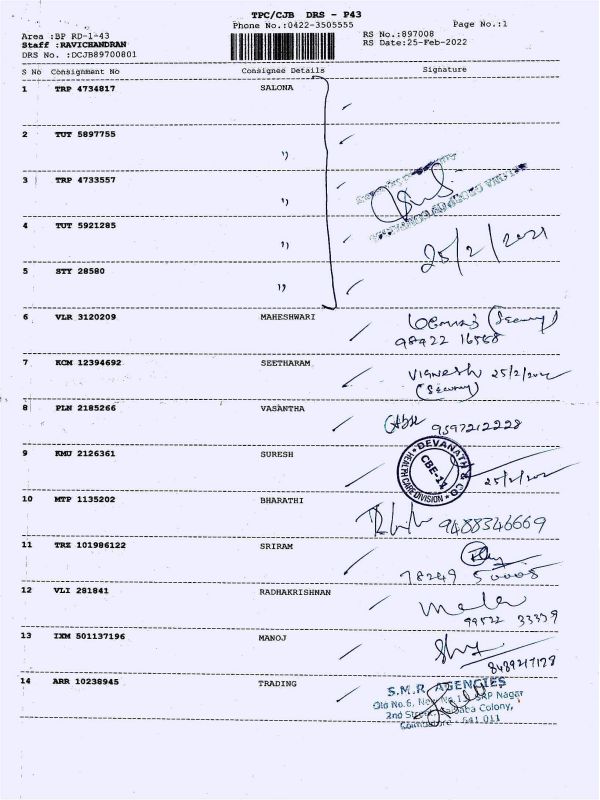 TPC/CJB DRS - P43
Phone No.:0422-3505555
Page No.:1
Area :BP RD-1-43
RS No.:897008
Staff :RAVICHANDRAN
RS Date:25-Feb-2022
DRS No. :DCJB89700801
S No Consignment No Consignee Details Signature
1 TRP 4734817 SALONA
2 TUT 5897755
"
3 TRP 4733557
"
4 TUT 5921285
"
25/2/2021
5 STY 28580
"
6 VLR 3120209 MAHESHWARI
(Security)
98422 16568
7 KCM 12394692 SEETHARAM
Vignesh 25/2/2022
(Security)
8 PLN 2185266 VASANTHA
9597212228
9 KMU 2126361 SURESH
DEVANATH & CO
CBE-14
HEALTH CARE DIVISION
10 MTP 1135202 BHARATHI
9488346669
11 TRZ 101986122 SRIRAM
78249 50005
12 VLI 281841 RADHAKRISHNAN
Mala
99522 33339
13 IXM 501137196 MANOJ
14 ARR 10238945 TRADING
S.M.R. AGENCIES
Old No.6, New No.13, SRP Nagar
2nd Street, Colony,
Coimbatore 641 011